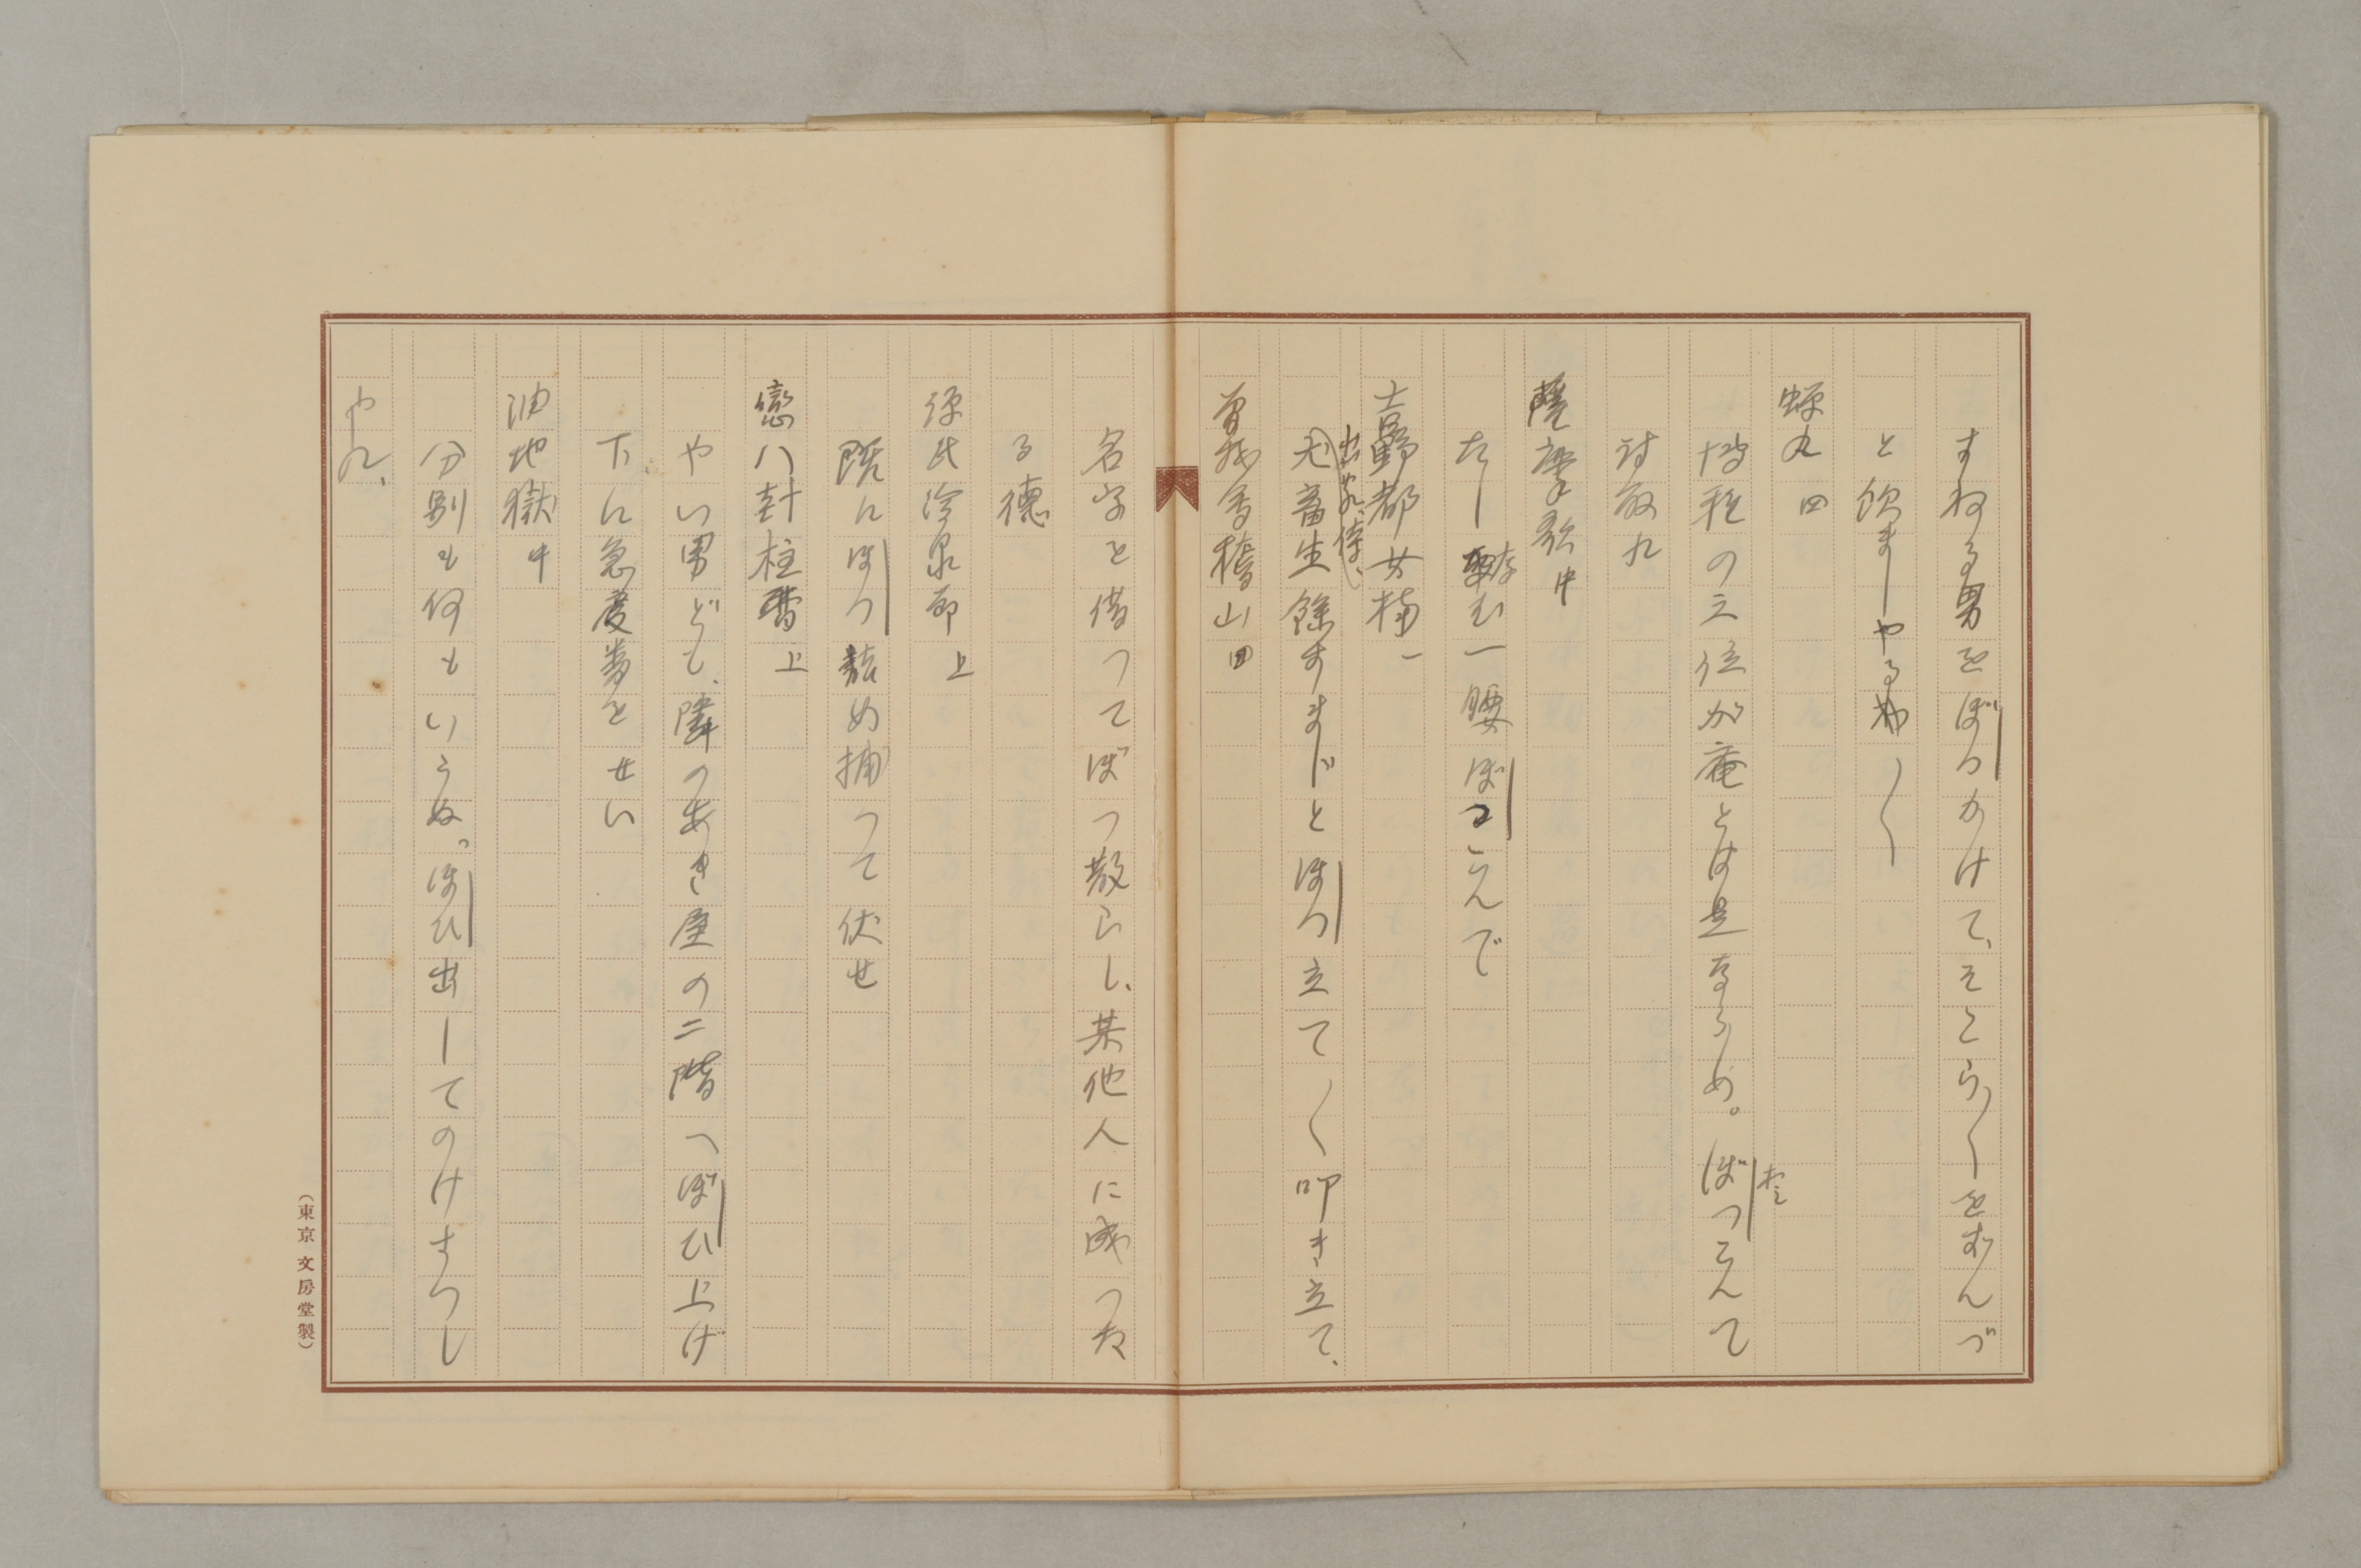 すねる男をぼつかけて、そこら〳〵をむんづ
と飲ましやるわ〳〵
蝉丸四
博雅の三位が庵とは是ならめ。ぼつこんで
討取れ
薩摩歌中
たしむ一腰ぼつこんで
吉野都女楠一
犬畜生餘すまじとぼつ立て〳〵叩き立て、
曽我会稽山四
名字を借つてぼつ散らし、某他人に成つた
る徳
源氏冷泉節上
既にぼつ詰め捕つて伏せ
戀八卦柱暦上
やい男ども、隣のあき屋の二階へぼひ上げ
下に急度番をせい
油地獄中
分別も何もいらぬ。ぼひ出してのけまつし
やれ、
(東京 文房堂製)